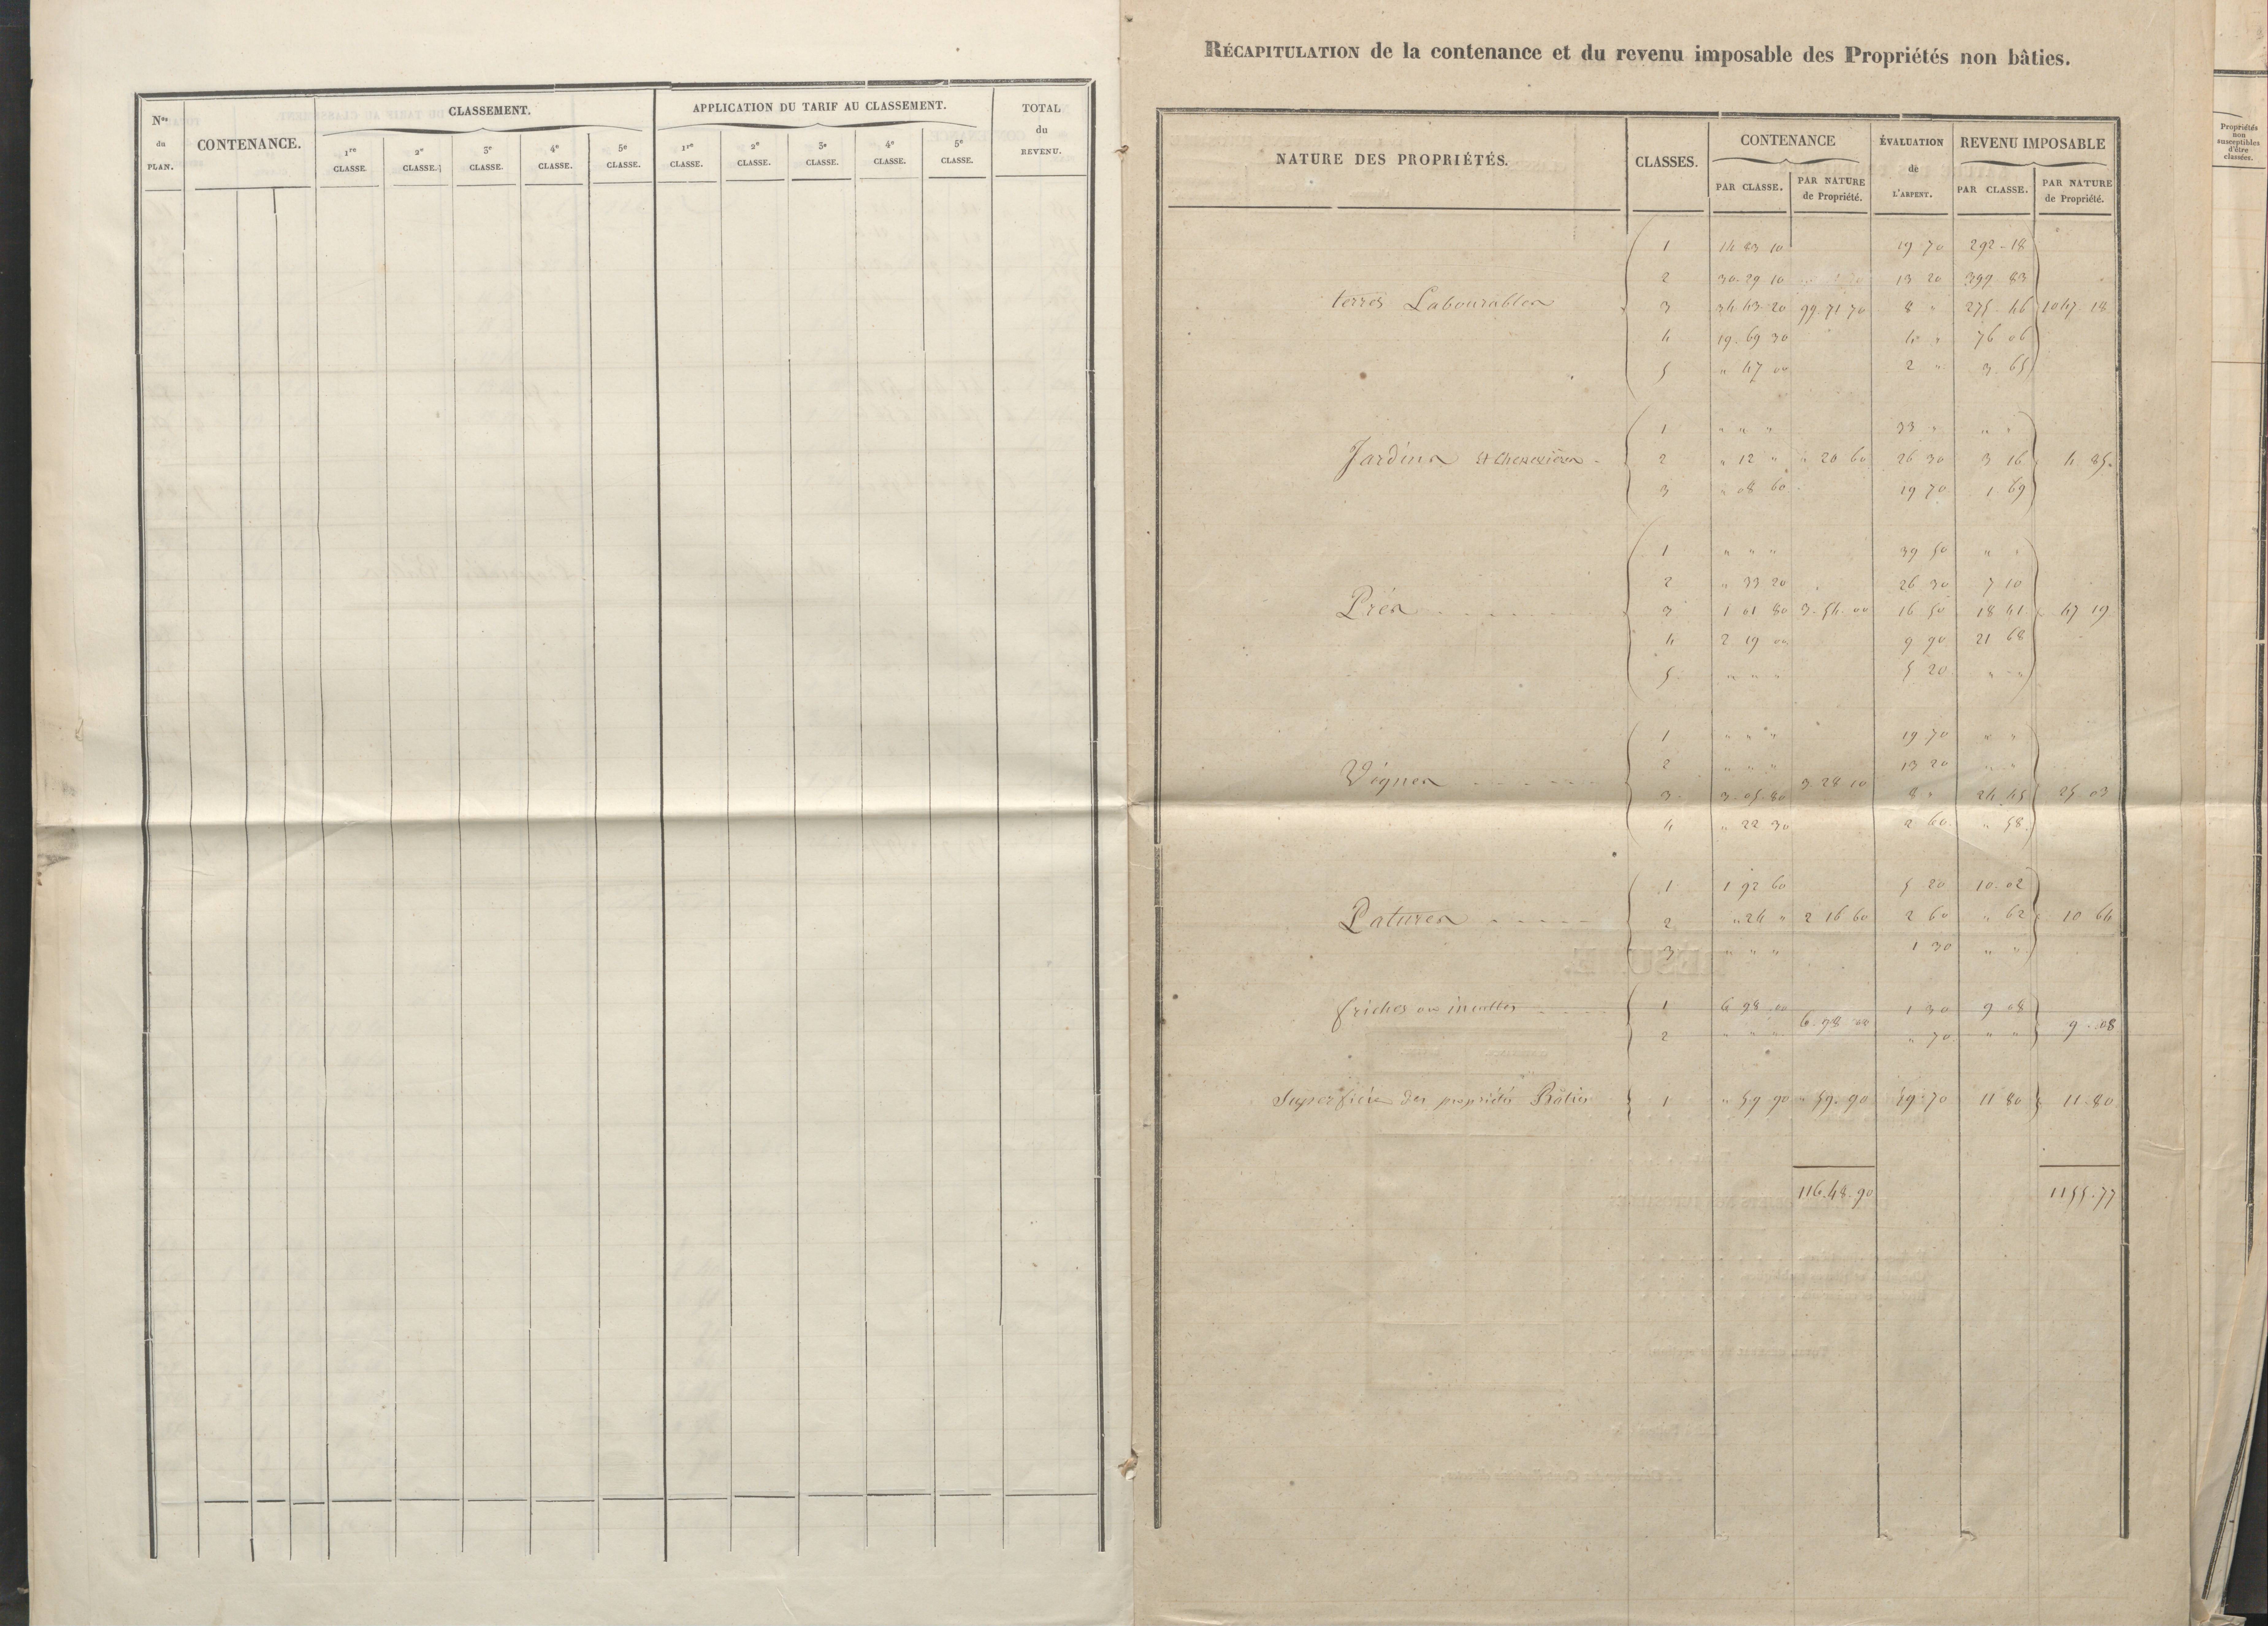 Nos du PLAN.
CONTENANCE.
CLASSEMENT.
1re CLASSE.
2e CLASSE.
3e CLASSE.
4e CLASSE.
5e CLASSE.
APPLICATION DU TARIF AU CLASSEMENT.
1re CLASSE.
2e CLASSE.
3e CLASSE.
4e CLASSE.
5e CLASSE.
TOTAL du REVENU.
RÉCAPITULATION de la contenance et du revenu imposable des Propriétés non bâties.
NATURE DES PROPRIÉTÉS.
CLASSES.
CONTENANCE
PAR CLASSE.
PAR NATURE de Propriété.
ÉVALUATION de L'ARPENT.
REVENU IMPOSABLE
PAR CLASSE.
PAR NATURE de Propriété.
1 14 83 10 19 70 292 - 18
2 30 - 29 10 13 20 399 83
terres Labourables 3 34 43 20 99 71 70 8 " 275 46 1047 18
4 19 69 30 4 " 76 06
5 " 47 00 2 " 3 65
1 " " " 33 " " "
Jardins et chenevières 2 " 12 " " 20 60 26 30 3 16 4 85
3 " 08 60 19 70 1 69
1 " " " 39 50 " "
2 " 33 20 26 30 7 10
Prés 3 1 01 80 3 - 54 00 16 50 18 41 47 19
4 2 19 00 9 90 21 68
5 " " " 5 20 " "
1 " " " 19 70 " "
2 " " " 13 20 " "
Vignes 3 28 10
3 3 05 80 8 " 24 45 25 03
4 " 22 30 2 60 " 58
1 1 92 60 5 20 10 - 02
Patures 2 " 24 " 2 16 60 2 60 " 62 10 64
3 " " " 1 30 " "
friches ou incultes 1 6 98 00 6 . 98 00 1 30 9 08 9 . 08
2 " " " " 70 " "
Superficie des propriétés Bâties 1 " 59 90 " 59 . 90 19 70 11 80 11 - 80
116 . 48 . 90 1155 . 77
Propriétés
non
susceptibles
d'être
classées.